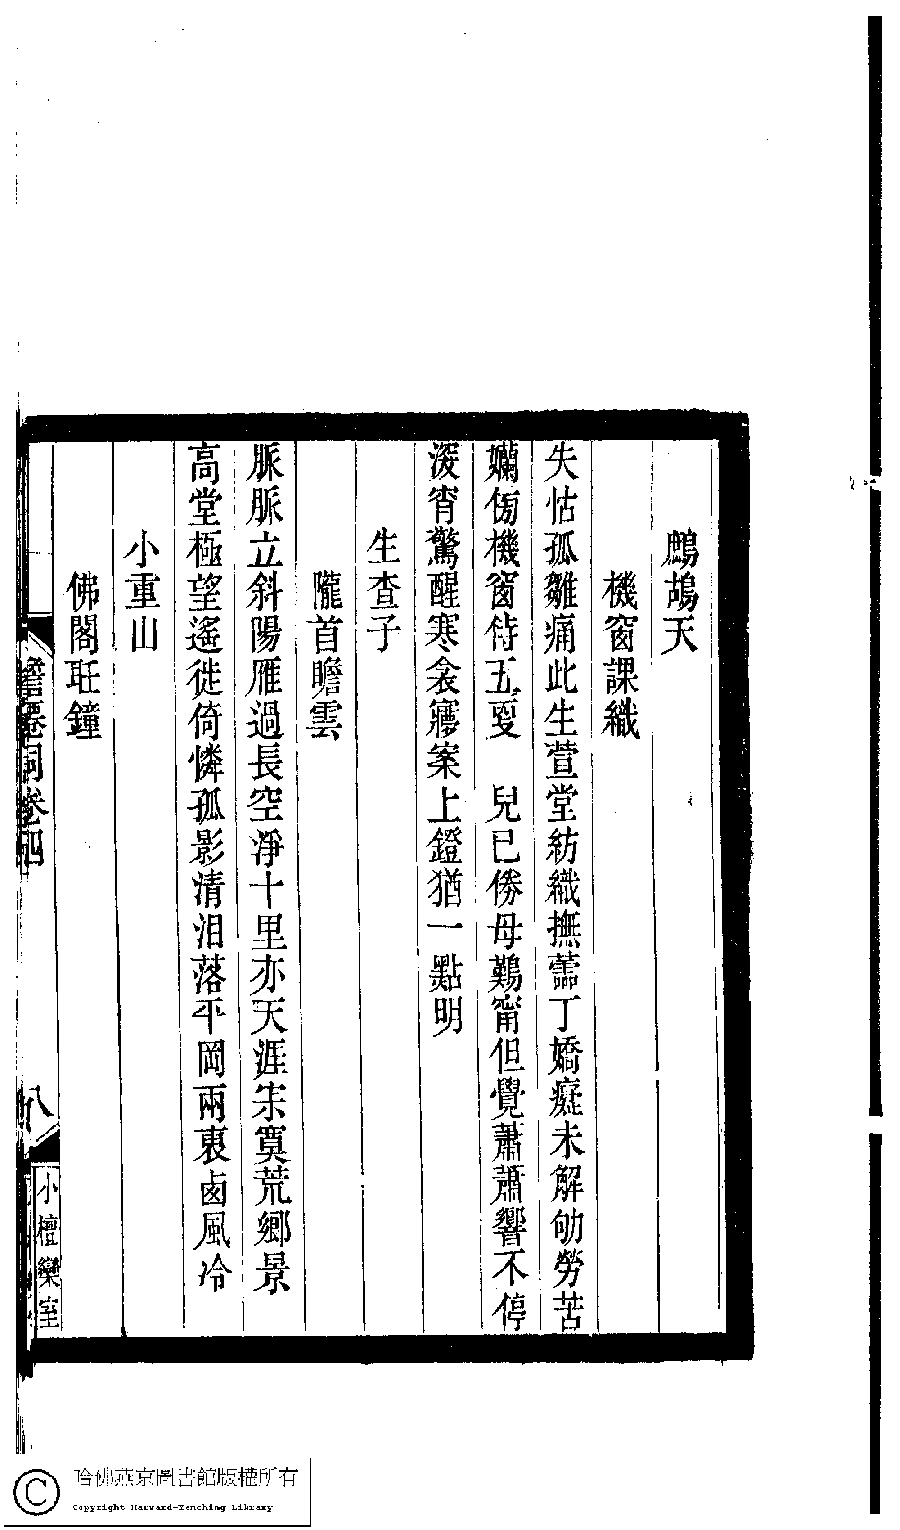 鷓鴣天
機窗課織
失怙孤雛痛此生萱堂紡織撫䔖丁嬌癡未解劬勞苦
嬾傍機窗侍五更　兒已倦母鷄甯但覺蕭蕭響不停
深宵驚醒寒衾寢案上鐙猶一點明
生查子
隴首瞻雲
脈脈立斜陽雁過長空淨十里亦天涯宋寞荒鄉景
高堂極望遙徙倚憐孤影清泪落平岡兩裏鹵風冷
小重山
佛閣聽鐘
詞卷四
八
小檀欒室
哈佛燕京圖書館版權所有
Copyright Harvard-Yenching Library